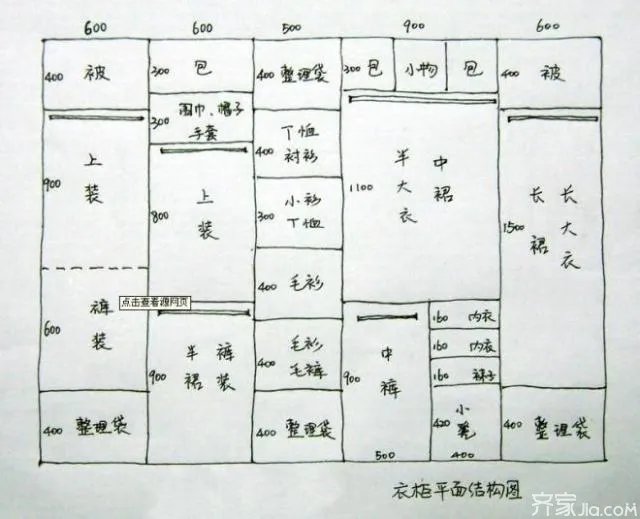 600 600 500 900 600
400 被
300 包
400 整理袋
300 包
小物
包
400 被
300 围巾、帽子
手套
400 T恤
衬衫
上装
900
上装
800
300 小衫
T恤
半大衣
中裙
1100
长裙
长大衣
1500
400 毛衫
裤装
600
点击查看源网页
半裙
裤装
900
400 毛衫
毛裤
中裤
900
160 内衣
160 内衣
160 袜子
400 整理袋
400 整理袋
500
420 小凳
400
400 整理袋
衣柜平面结构图
齐家Jia.com